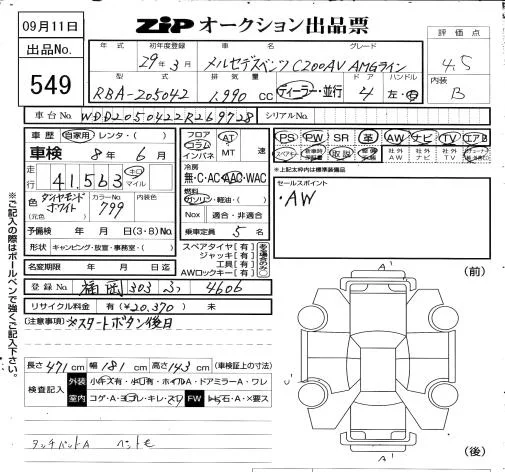 09月11日
出品No.
549
ZIP オークション出品票
年式 初年度登録 車名 グレード
29年3月 メルセデスベンツ C200AV AMGライン
型式 排気量 ドア ハンドル
RBA-205042 1,990 CC ディーラー・並行 4 左・右
評価点
4.5
内装
B
車台No. WDD2050422R269728 シリアルNo.
車歴 自家用・レンタ・( )
車検 8年 6月
走行 41,563 km マイル
色(元色) ダイヤモンドホワイト カラーNo. 799 内装色
予備検 年 月 日(3・8)No.
形状 キャンピング・放室・事務室・( )
名変期限 年 月 日迄
登録No. 福岡 303 4606
リサイクル料金 有(¥20,370) 未
フロア コラム インパネ AT MT 速
冷房 無・C・AC・AAC・WAC
燃料 ガソリン・軽油・( )
Nox 適合・非適合
乗車定員 5名
スペアタイヤ[有]
ジャッキ[有]
工具[有]
AWロックキー[有]
PS PW SR 革 AW ナビ TV エアB
スペアキー 取説 社外AW 社外ナビ 社外TV
※上記太枠内は標準装備品
セールスポイント
・AW
(注意事項) ※スタートボタン後日
長さ 471cm 幅 181cm 高さ 143cm (車検証上の寸法)
検査記入
外装 小キズ有・小凹有・ホイルA・ドアミラーA・ワレ
室内 コゲ・A・ヨゴレ・キレ・スリ FW トビ石・A・×要ス
タッチペイントA
A'
(前)
U'
A'
(後)
※ご記入の際はボールペンで強くご記入下さい。